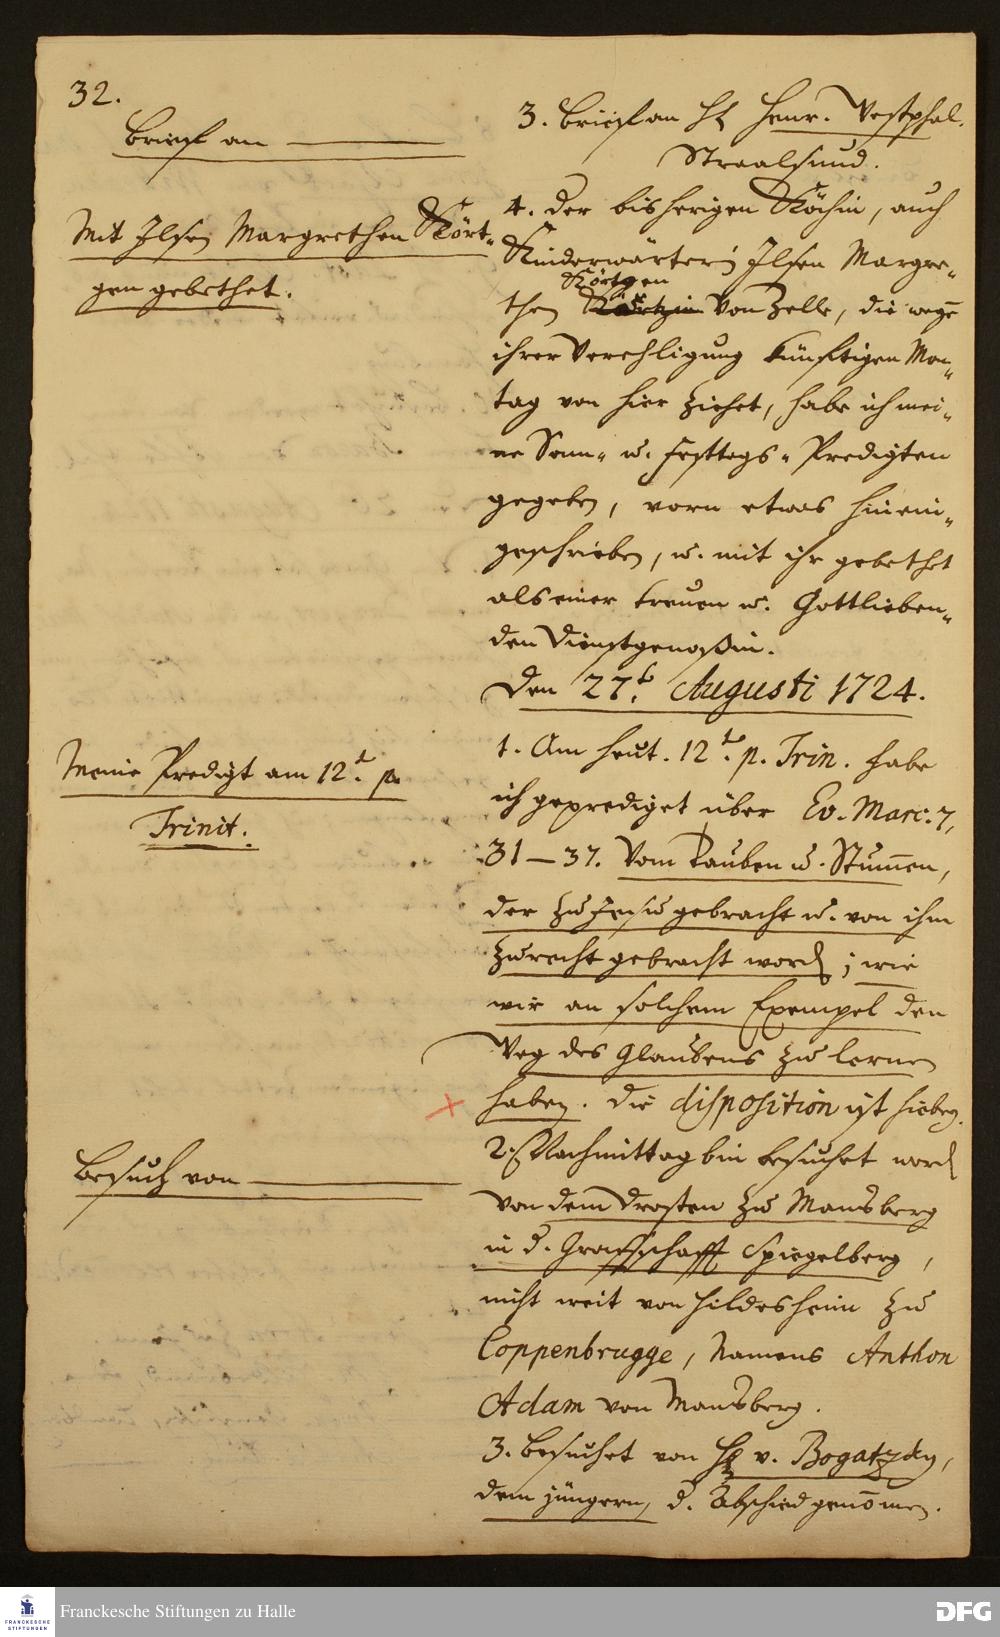 32.
Brief an
Mit Ilsen Margrethen Kört-
gen gebethet.
Meine Predigt am 12.t p.
Trinit.
Besuch von
3. Brief an H. Henr. Westphal.
Straalsund.
4. Der bisherigen Köchin, auch
Kinderwärterin Ilsen Margre-
Körtgen
then von Zelle, die wegen
ihrer Verehligung künftigen Mon-
tag von hier ziehet, habe ich mei-
ne Sonn- u. Festtags-Predigten
gegeben, vorn etwas hinein-
geschrieben, u. mit ihr gebethet
als einer treuen u. Gottlieben-
den Dienstgenoßin.
Den 27.t Augusti 1724.
1. Am heut. 12.t p. Trin. habe
ich geprediget über Ev. Marc. 7,
31–37. Vom Tauben u. Stum̄en,
der zu Jesu gebracht u. von ihm
zurecht gebracht word; wie
wir an solchem Exempel den
Weg des Glaubens zu lernen
haben. Die disposition ist hiebey.
2. Nachmittag bin besuchet word
von dem Drosten zu Mansberg
in d. Grafschafft Spiegelberg,
nicht weit von Hildesheim zu
Coppenbrugge, Namens Anthon
Adam von Mansberg.
3. Besuchet von H. v. Bogatzky,
dem jüngern, d. Abschied genom̄en.
Franckesche Stiftungen zu Halle
FRANCKESCHE
STIFTUNGEN
DFG